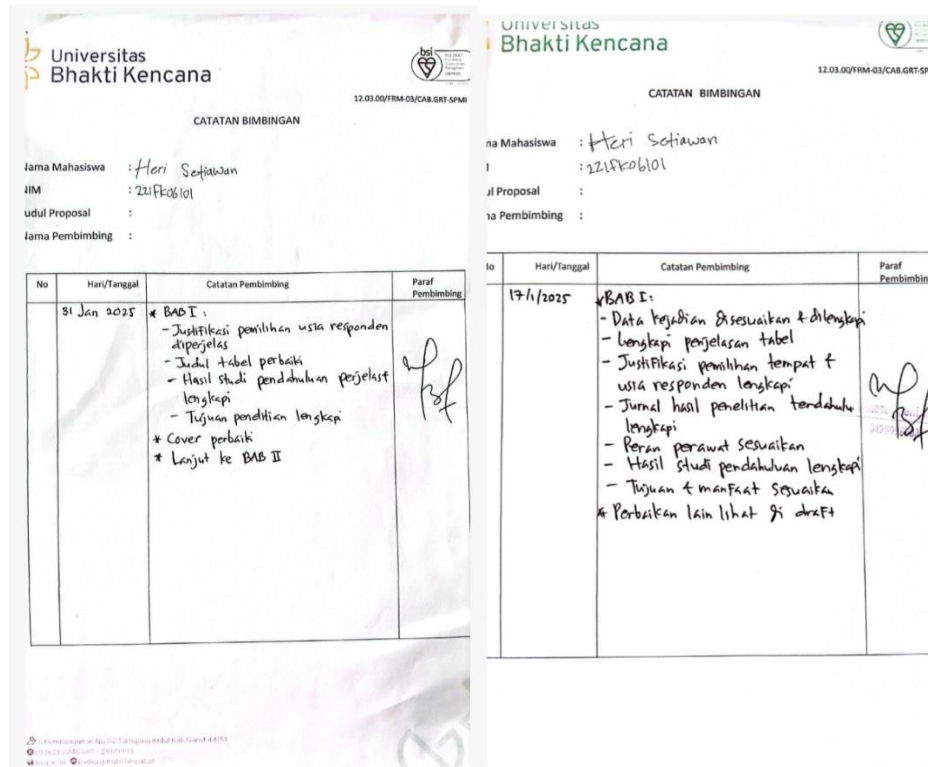 Universitas
Bhakti Kencana
bsi
12.03.00/FRM-03/CAB.GRT-SPMI
CATATAN BIMBINGAN
Nama Mahasiswa : Heri Setiawan
NIM : 221FK06101
Judul Proposal :
Nama Pembimbing :
No Hari/Tanggal Catatan Pembimbing Paraf Pembimbing
31 Jan 2025 * BAB I :
- Justifikasi pemilihan usia responden
diperjelas
- Judul tabel perbaiki
- Hasil studi pendahuluan perjelas &
lengkapi
- Tujuan penelitian lengkapi
* Cover perbaiki
* Lanjut ke BAB II
Universitas
Bhakti Kencana
12.03.00/FRM-03/CAB.GRT-SP
CATATAN BIMBINGAN
na Mahasiswa : Heri Setiawan
: 221FK06101
ul Proposal :
na Pembimbing :
lo Hari/Tanggal Catatan Pembimbing Paraf Pembimbin
17/1/2025 * BAB I :
- Data kejadian disesuaikan & dilengkapi
- Lengkapi penjelasan tabel
- Justifikasi pemilihan tempat &
usia responden lengkapi
- Jurnal hasil penelitian terdahulu
lengkapi
- Peran perawat sesuaikan
- Hasil studi pendahuluan lengkapi
- Tujuan & manfaat sesuaikan
* Perbaikan lain lihat di draft